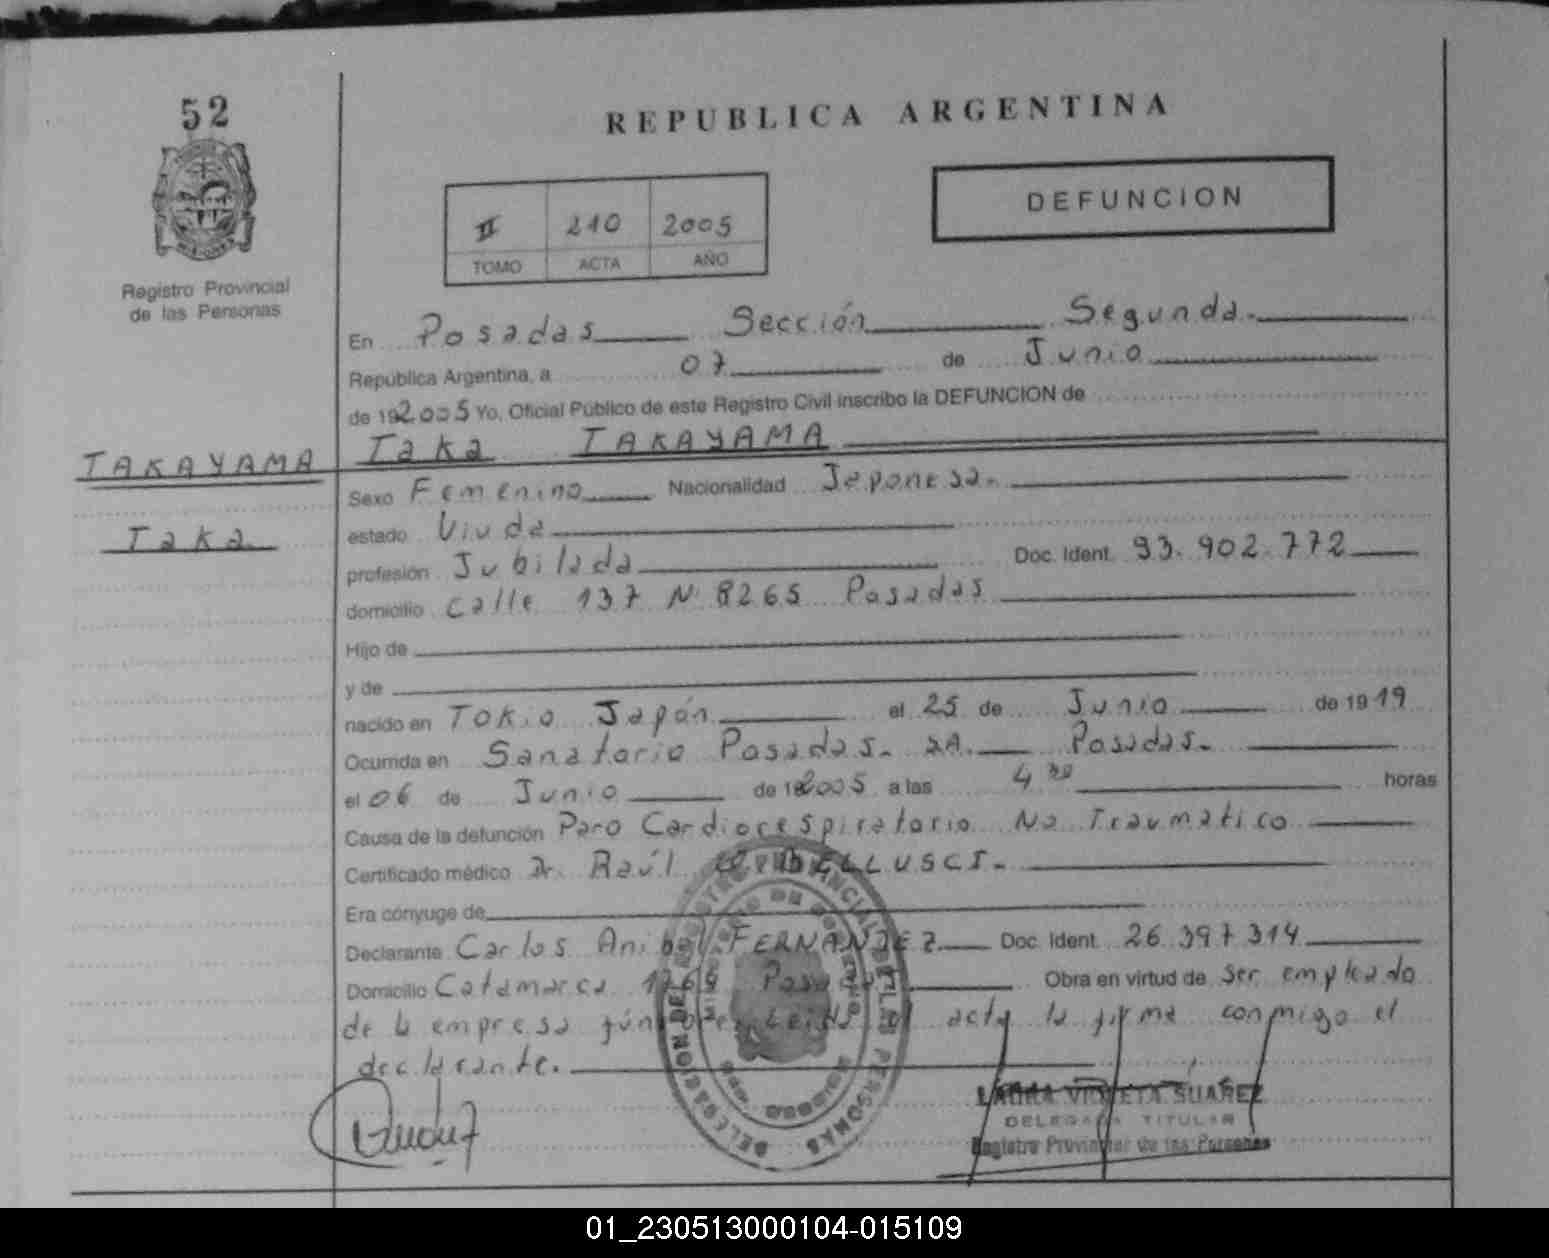 52
Registro Provincial
de las Personas
REPUBLICA ARGENTINA
II 210 2005
TOMO ACTA AÑO
DEFUNCION
En Posadas Sección Segunda.
República Argentina, a 07 de Junio
de 192005 Yo, Oficial Público de este Registro Civil inscribo la DEFUNCION de
TAKAYAMA
Taka
Taka TAKAYAMA
Sexo Femenino Nacionalidad Japonesa.
estado Viuda
profesión Jubilada Doc. Ident. 93.902.772
domicilio Calle 137 N 8265 Posadas
Hijo de
y de
nacido en Tokio Japón el 25 de Junio de 1919
Ocurrida en Sanatorio Posadas. SA. Posadas.
el 06 de Junio de 2005 a las 4 30 horas
Causa de la defunción Paro Cardiorespiratorio No Traumatico
Certificado médico Dr. Raúl BELLUSCI.
Era cónyuge de
Declarante Carlos Anibal FERNANDEZ Doc. Ident. 26.397.314
Domicilio Catamarca Obra en virtud de ser empleado
de la empresa acta la firma conmigo el
declarante.
LAURA VIOLETA SUAREZ
DELEGADA TITULAR
Registro Provincial de las Personas
01_230513000104-015109